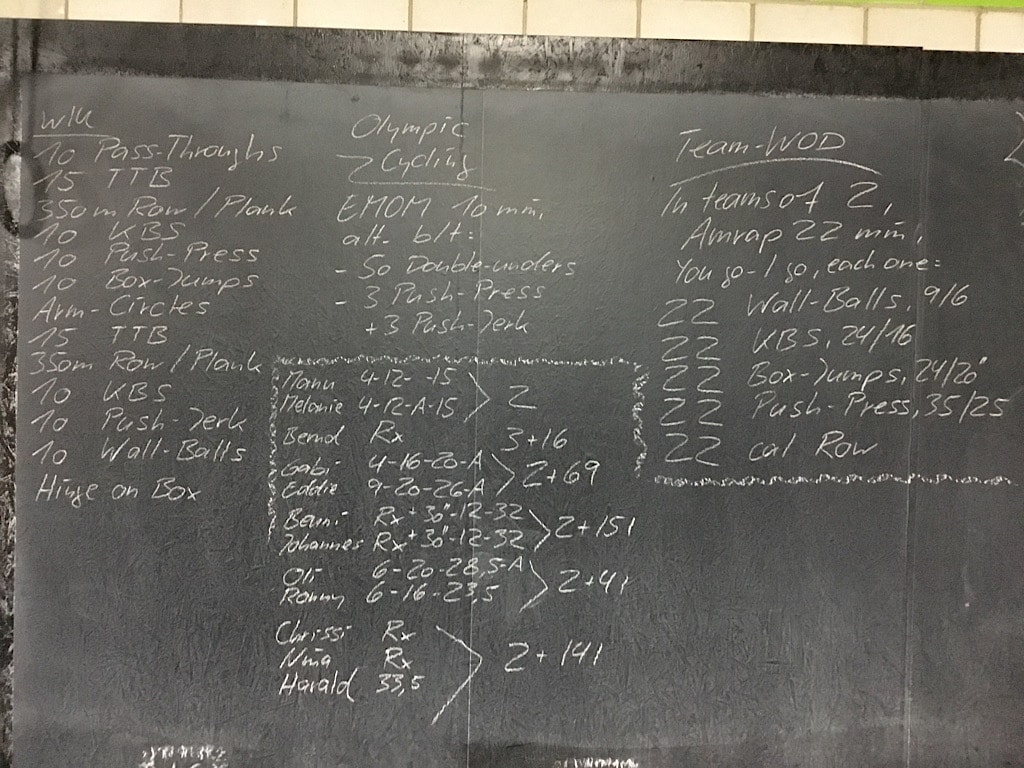 WU
10 Pass-Throughs
15 TTB
350m Row / Plank
10 KBS
10 Push-Press
10 Box-Jumps
Arm-Circles
15 TTB
350m Row / Plank
10 KBS
10 Push-Jerk
10 Wall-Balls
Hinge on Box
Olympic
Cycling
EMOM 10 min,
alt. b/t:
- 50 Double-unders
- 3 Push-Press
+3 Push-Jerk
Manu 4-12- -15
Melanie 4-12-A-15
2
Bernd Rx 3+16
Gabi 4-16-20-A
Eddie 9-20-26-A
2+69
Benni Rx+30"-12-32
Johannes Rx+30"-12-32
2+151
Oli 6-20-28,5-A
Ronny 6-16-23,5
2+41
Chrissi Rx
Nina Rx
Harald 33,5
2+141
Team-WOD
In teams of 2,
Amrap 22 min,
You go-I go, each one:
22 Wall-Balls, 9/6
22 KBS, 24/16
22 Box-Jumps, 24/20"
22 Push-Press, 35/25
22 cal Row